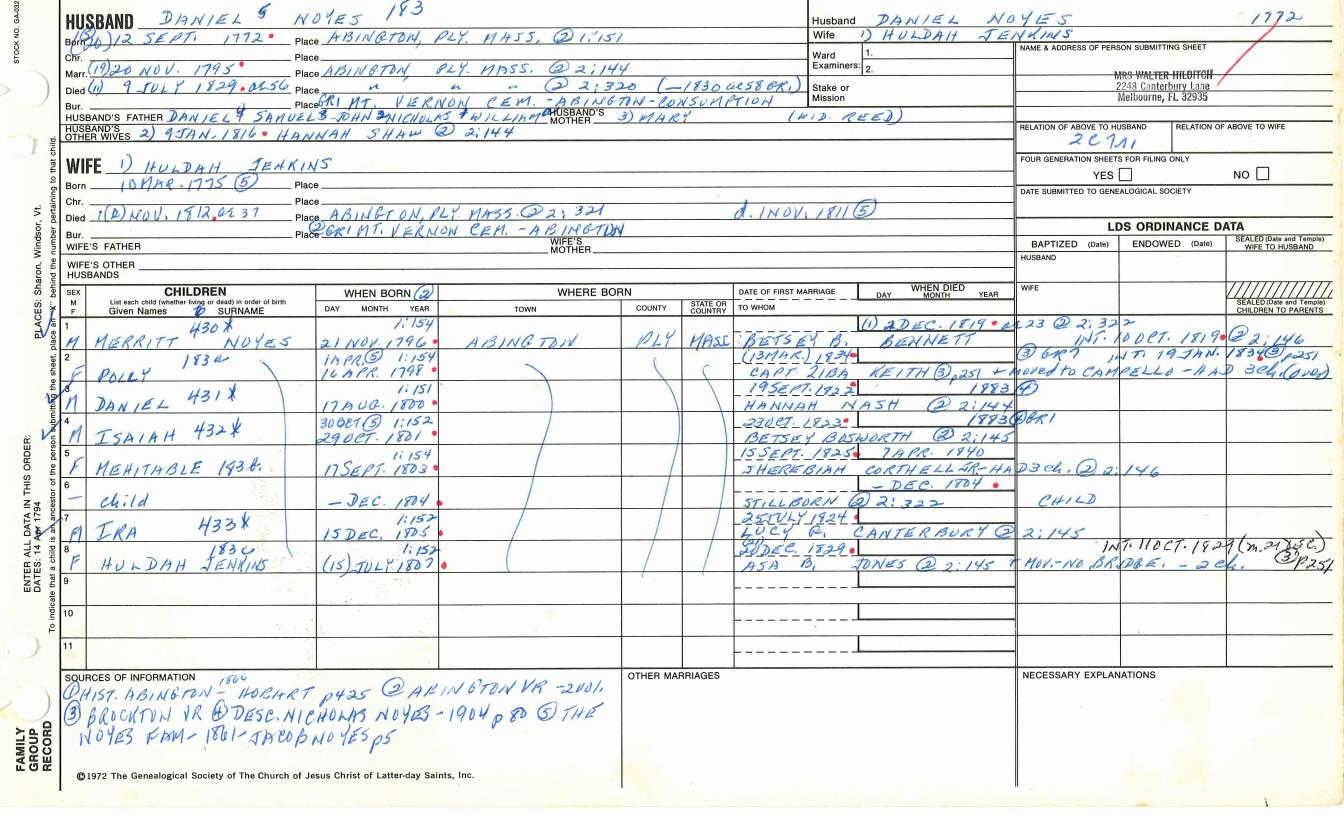 STOCK NO. GA-032
HUSBAND DANIEL 5 NOYES 183
Born 12 SEPT. 1772 Place ABINGTON, PLY. MASS. ② 1:151
Chr. Place
Marr. (19)20 NOV. 1795 Place ABINGTON, PLY. MASS. ② 2:144
Died (11) 9 JULY 1829. Æ 56 Place " " " ② 2:320 (-1830 Æ 58 GR1)
Bur. Place GR1 MT. VERNON CEM. - ABINGTON - CONSUMPTION
HUSBAND'S FATHER DANIEL 4 SAMUEL 3 JOHN 2 NICHOLAS 1 WILLIAM HUSBAND'S MOTHER 3) MARY (WID. REED)
HUSBAND'S OTHER WIVES 2) 9 JAN. 1816 HANNAH SHAW ② 2:144
Husband DANIEL NOYES 1772
Wife 1) HULDAH JENKINS
Ward Examiners: 1.
2.
Stake or Mission
NAME & ADDRESS OF PERSON SUBMITTING SHEET
MRS WALTER HILDITCH
2248 Canterbury Lane
Melbourne, FL 32935
RELATION OF ABOVE TO HUSBAND RELATION OF ABOVE TO WIFE
FOUR GENERATION SHEETS FOR FILING ONLY
YES NO
DATE SUBMITTED TO GENEALOGICAL SOCIETY
WIFE 1) HULDAH JENKINS
Born 10 MAR. 1775 ⑤ Place
Chr. Place
Died NOV. 1812. Æ 37 Place ABINGTON, PLY. MASS. ② 2:321 d. 1 NOV. 1811 ⑤
Bur. Place ② GR1 MT. VERNON CEM. - ABINGTON
WIFE'S FATHER WIFE'S MOTHER
WIFE'S OTHER HUSBANDS
LDS ORDINANCE DATA
BAPTIZED (Date) ENDOWED (Date) SEALED (Date and Temple) WIFE TO HUSBAND
HUSBAND
WIFE
SEALED (Date and Temple) CHILDREN TO PARENTS
SEX M F CHILDREN List each child (whether living or dead) in order of birth Given Names 6 SURNAME
WHEN BORN ② DAY MONTH YEAR
WHERE BORN TOWN COUNTY STATE OR COUNTRY
DATE OF FIRST MARRIAGE TO WHOM
WHEN DIED DAY MONTH YEAR
1 430 X 1:154 (1) 2 DEC. 1819 Æ 23 ② 2:322
M MERRITT NOYES 21 NOV. 1796 ABINGTON PLY MASS BETSEY B. BENNETT INT. 10 OCT. 1819 ② 2:146
2 183a 1 APR. ⑤ 1:154 (13 MAR.) 1834 ③ GR7 INT. 19 JAN. 1834 ③ p251
F POLLY 16 APR. 1798 CAPT ZIBA KEITH ③ p251 + MOVED TO CAMPELLO - HAD 3 ch. (over)
3 1:151 19 SEPT. 1822 1883 ④
M DANIEL 431 X 17 AUG. 1800 HANNAH NASH ② 2:144
4 30 OCT ⑤ 1:152 23 OCT. 1823 1883 ④ GR1
M ISAIAH 432 X 29 OCT. 1801 BETSEY BOSWORTH ② 2:145
5 1:154 15 SEPT. 1825 7 APR. 1840
F MEHITABLE 183b. 17 SEPT. 1803 SHEREBIAH CORTHELL JR - HAD 3 ch. ② 2:146
6 - DEC. 1804
- child - DEC. 1804 STILLBORN ② 2:322 CHILD
7 433 X 1:152 25 JULY 1824
M IRA 15 DEC. 1805 LUCY R. CANTERBURY ② 2:145
8 183c 1:152 20 DEC. 1829 INT. 11 OCT. 1829 (m. 21)
F HULDAH JENKINS (15) JULY 1807 ASA B. JONES ② 2:145 + MOV. - NO BRIDGE. - 2 ch. ③ p251
9
10
11
SOURCES OF INFORMATION
① HIST. ABINGTON - 1866 HOBART p425 ② ABINGTON VR - 2 VOL.
③ BROCKTON VR ④ DESC. NICHOLAS NOYES - 1904 p 80 ⑤ THE
NOYES FAM - 1861 - JACOB NOYES p5
OTHER MARRIAGES
NECESSARY EXPLANATIONS
©1972 The Genealogical Society of The Church of Jesus Christ of Latter-day Saints, Inc.
FAMILY GROUP RECORD
ENTER ALL DATA IN THIS ORDER:
DATES: 14 Apr 1794
PLACES: Sharon, Windsor, Vt.
To indicate that a child is an ancestor of the person submitting the sheet, place an "X" behind the number pertaining to that child.